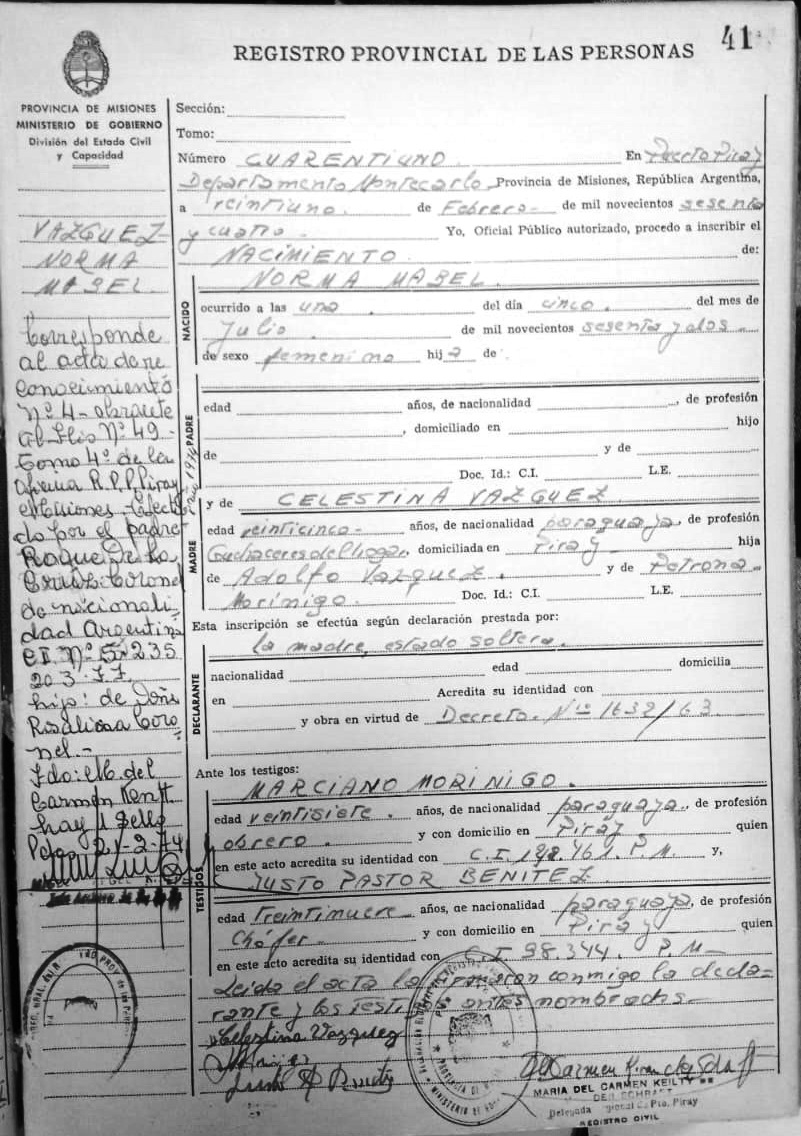 41
REGISTRO PROVINCIAL DE LAS PERSONAS
PROVINCIA DE MISIONES
MINISTERIO DE GOBIERNO
División del Estado Civil
y Capacidad
VAZGUEZ
NORMA
MABEL.
Corresponde
al acta de re
conocimiento
Nº 4 - obrante
al folio Nº 49 -
Tomo 4º de la
oficina R.P.P. Piray
Misiones - efectua
do por el padre
Roque De La
Cruz Coronel
de nacionali
dad Argentina
C.I. Nº 5235
203
hijo: de Doña
Rosalina Coro
nel.-
Fdo: M. del
Carmen
hay 1 Sello
21-2-74
Sección:
Tomo:
Número CUARENTIUNO. En Puerto Piray
Departamento Montecarlo, Provincia de Misiones, República Argentina,
a veintiuno. de Febrero- de mil novecientos sesenta
y cuatro. Yo, Oficial Público autorizado, procedo a inscribir el
NACIMIENTO. de:
NORMA MABEL.
NACIDO
ocurrido a las una. del día cinco. del mes de
Julio. de mil novecientos sesenta y dos.
de sexo femenino hija de
PADRE
edad años, de nacionalidad , de profesión
, domiciliado en hijo
de y de
Doc. Id.: C.I. L.E.
y de CELESTINA VAZGUEZ
MADRE
edad veinticinco- años, de nacionalidad paraguaya, de profesión
Quehaceres del hogar, domiciliada en Piray- hija
de Adolfo Vazquez. y de Petrona
Morinigo. Doc. Id.: C.I. L.E.
Esta inscripción se efectúa según declaración prestada por:
la madre, estado soltera.
DECLARANTE
nacionalidad edad domicilia
en Acredita su identidad con
y obra en virtud de Decreto. Nº 1632/63
Ante los testigos:
MARCIANO MORINIGO.
TESTIGOS
edad veintisiete. años, de nacionalidad paraguaya, de profesión
obrero. y con domicilio en Piray quien
en este acto acredita su identidad con C.I. 198.461. P.M. y,
JUSTO PASTOR BENITEZ
edad Treintinueve años, de nacionalidad paraguaya, de profesión
Chófer y con domicilio en Piray quien
en este acto acredita su identidad con C.I 98.344. P.M-
Leida el acta la firmaron conmigo la decla-
rante y los testigos antes nombrados.-
Celestina Vazquez
MARIA DEL CARMEN KEILTY
Delegada Pto. Piray
REGISTRO CIVIL